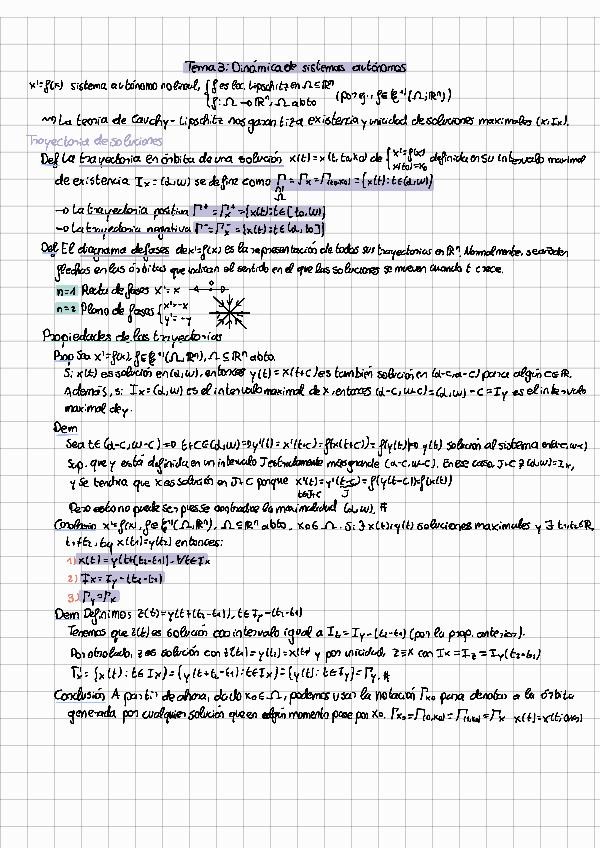 Tema 3: Dinámica de sistemas autónomos
x'=f(x) sistema autónomo no lineal, { f es loc. Lipschitz en Ω⊆ℝⁿ
f: Ω → ℝⁿ, Ω abto (por ej., f∈𝒞¹(Ω;ℝⁿ))
⇝ La teoría de Cauchy-Lipschitz nos garantiza existencia y unicidad de soluciones maximales (x, Ix).
Trayectoria de soluciones
Def La trayectoria en órbita de una solución x(t)=x(t,t0,x0) de { x'=f(x) x(t0)=x0 definida en su intervalo maximal
de existencia Ix=(α,ω) se define como Γ=Γx=Γ(t0,x0)={x(t):t∈(α,ω)}
→ La trayectoria positiva Γ⁺=Γx⁺={x(t):t∈[t0,ω)}
→ La trayectoria negativa Γ⁻=Γx⁻={x(t):t∈(α,t0]}
Def El diagrama de fases de x'=f(x) es la representación de todas sus trayectorias en ℝⁿ. Normalmente, se añaden
flechas en las órbitas que indican el sentido en el que las soluciones se mueven cuando t crece.
n=1 Recta de fases x'=x
n=2 Plano de fases { x'=-x y'=-y
Propiedades de las trayectorias
Prop Sea x'=f(x), f∈𝒞¹(Ω,ℝⁿ), Ω⊆ℝⁿ abto.
Si x(t) es solución en (α,ω), entonces y(t)=x(t+c) es también solución en (α-c,ω-c) para algún c∈ℝ.
Además, si Ix=(α,ω) es el intervalo maximal de x, entonces (α-c,ω-c)=(α,ω)-c=Iy es el intervalo
maximal de y.
Dem
Sea t∈(α-c,ω-c) ⇒ t+c∈(α,ω) ⇒ y'(t)=x'(t+c)=f(x(t+c))=f(y(t)) ⇒ y(t) solución al sistema en (α-c,ω-c)
Sup. que y está definida en un intervalo J estrictamente más grande (α-c,ω-c). En ese caso, J+c⊋(α,ω)=Ix,
y se tendría que x es solución en J+c porque x'(t)=y'(t-c)=f(y(t-c))=f(x(t))
t∈J+c J
Pero esto no puede ser, pues se contradice la maximalidad (α,ω). #
Corolario x'=f(x), f∈𝒞¹(Ω,ℝⁿ), Ω⊆ℝⁿ abto, x0∈Ω. Si ∃ x(t), y(t) soluciones maximales y ∃ t1,t2∈ℝ,
t1≠t2, tq x(t1)=y(t2) entonces:
1) x(t)=y(t+(t2-t1)), ∀t∈Ix
2) Ix=Iy-(t2-t1)
3) Γy=Γx
Dem Definimos z(t)=y(t+(t2-t1)), t∈Iy-(t2-t1)
Tenemos que z(t) es solución con intervalo igual a Iz=Iy-(t2-t1) (por la prop. anterior).
Por otro lado, z es solución con z(t1)=y(t2)=x(t1) y por unicidad, z≡x con Ix=Iz=Iy(t2-t1)
Γx={x(t):t∈Ix}={y(t+t2-t1):t∈Ix}={y(t):t∈Iy}=Γy. #
Conclusión A partir de ahora, dado x0∈Ω, podemos usar la notación Γx0 para denotar a la órbita
generada por cualquier solución que en algún momento pase por x0. Γx0=Γ(0,x0)=Γ(t,x0)=Γx